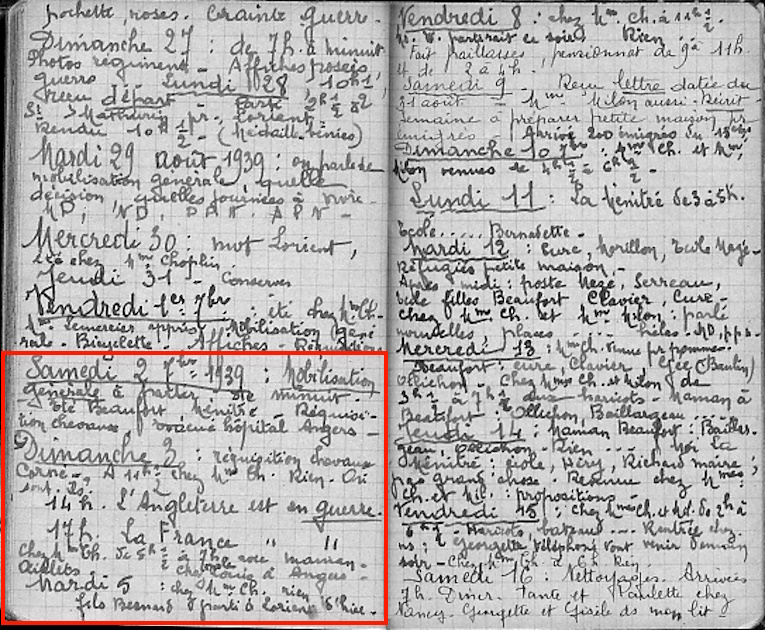 pochette, roses. Crainte guerre.
Dimanche 27 : de 7h. à minuit
Photos régiment - Affiches posées,
guerre - Lundi 28, 10h 1/2,
reçu départ - Parti 2h 1/2 à 2
St Mathurin pr. Lorient -
Rendu 10h 1/2 - (Médaille bénies)
Mardi 29 août 1939 : on parle de
mobilisation générale, quelle
décision, quelles journées à vivre.
MD, ND, DPN. APN -
Mercredi 30 : mot Lorient,
été chez Mme Choplin.
Jeudi 31 - Conserves
Vendredi 1er 7bre : été chez Mme Ch.
Mme Lemercier après. Mobilisation géné
rale - Bicyclette. Affiches - Réquisitions
Samedi 2 7bre 1939 : Mobilisation
générale à partir de minuit.
Eté Beaufort, Ménitré - Réquisi-
tion chevaux évacué hôpital Angers -
Dimanche 3 : réquisition chevaux
Corné - A 11h : chez Mme Ch. Rien. Où
sont-ils ?
14h. L'Angleterre est en guerre.
17h. La France " "
Chez Mme Ch. de 5h 1/2 à 7h 1/2 avec maman.
Œillets Louis à Angers -
Mardi 5 : chez Mme Ch. rien
fils Besnard parti à Lorient
Vendredi 8 : chez Mme Ch. à 11h 1/2.
partirait ce soir. Rien
Fait paillasses, pensionnat de 9 à 11h.
et de 2 à 4h.
Samedi 9 - Reçu lettre datée du
31 août - Mme Milon aussi. Récrit -
Semaine à préparer petite maison pr
émigrés - Arrivé 200 émigrés du
Dimanche 10 7bre : Mme Ch. et Mme
Milon venues de 4h 1/2 à 6h 1/2.
Lundi 11 : La Ménitré de 3 à 5h.
Ecole ..... Bernadette -
Mardi 12 : Cure, Morillon, Ecole Mazé -
Réfugiés petite maison -
Après-midi : poste Mazé, Serreau,
école filles Beaufort Clavier, Cure -
chez Mme Ch. et Mme Milon : parlé
nouvelles places - - - hélas. MD, p.p.n.
Mercredi 13 : Mme Ch. venue pr pommes.
Beaufort : cure, Clavier, Gée (Bautin)
Ollichon - Chez Mmes Ch. et Milon de
3h 1/2 à 7h 1/2 aux haricots - Maman à
Beaufort : Ollichon, Baillargeau ....
Jeudi 14 : Maman Beaufort : Baillar-
geau, Ollichon - Rien ... - Moi La
Ménitré : école, Héry, Richard maire ;
pas grand chose - Revenue chez Mmes
Ch. et Mil : propositions -
Vendredi 15 : Chez Mmes Ch. et Mil. de 2h à
6h 1/2 - Haricots, bateau ... - Rentrée chez
ns : Georgette téléphone vont venir demain
soir - Chez Mme Ch. à 6h Rien.
Samedi 16 : Nettoyages. Arrivées
7h. Diner - Tante et Paulette chez
Nancy - Georgette et Gisèle ds mon lit -